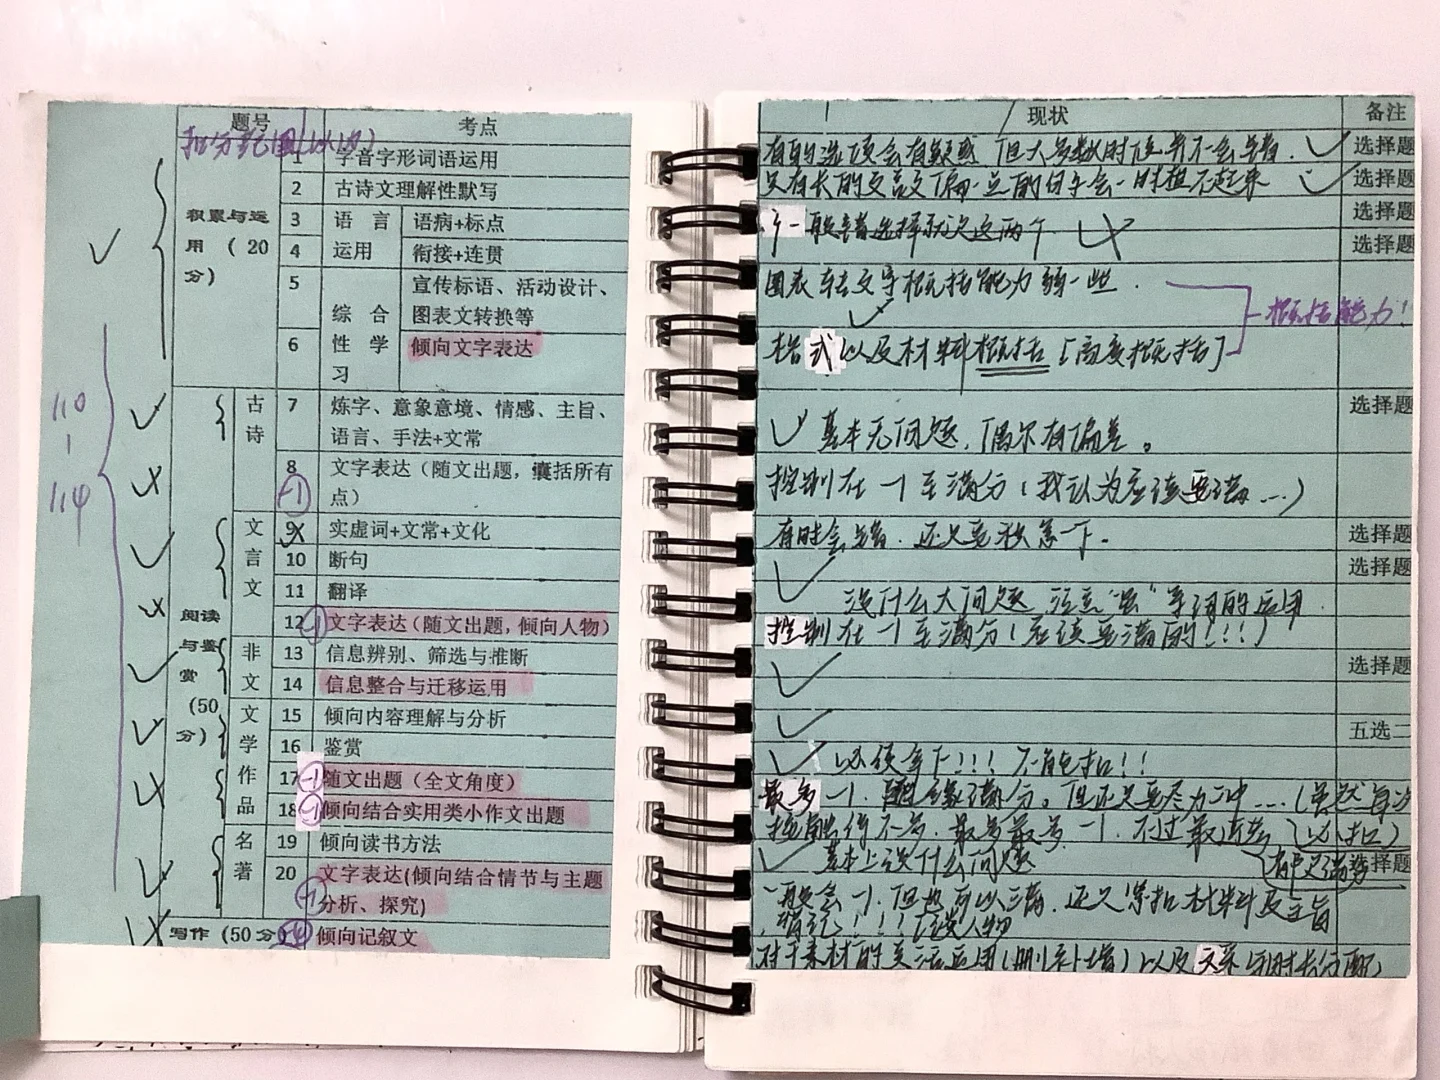 题号 考点
扣分范围(以内)
1 字音字形词语运用
2 古诗文理解性默写
积累与运用(20分)
3 语言运用 语病+标点
4 衔接+连贯
5 综合性学习 宣传标语、活动设计、图表文转换等
6 倾向文字表达
110
114
阅读与鉴赏(50分)
古诗
7 炼字、意象意境、情感、主旨、
语言、手法+文常
8 文字表达(随文出题,囊括所有
点)
-1
文言文
9 实虚词+文常+文化
10 断句
11 翻译
12 -1 文字表达(随文出题,倾向人物)
非文
13 信息辨别、筛选与推断
14 信息整合与迁移运用
文学作品
15 倾向内容理解与分析
16 鉴赏
17 -1 随文出题(全文角度)
18 -1 倾向结合实用类小作文出题
名著
19 倾向读书方法
20 文字表达(倾向结合情节与主题
-1 分析、探究)
写作(50分) 倾向记叙文
现状 备注
有的选项会有疑惑 但大多数时候并不会导错. 选择题
只有长的文言文(偏一点的句子会一时想不起来 选择题
一般错选择就是这两个 选择题
选择题
图表转文字概括能力弱一些.
概括能力!
格式以及材料概括[高度概括]
选择题
基本无问题,偶尔有偏差。
控制在-1至满分(我认为应该要满...)
有时会错.还是要积累一下. 选择题
选择题
没什么大问题 注意"虽"等词的运用.
控制在-1至满分(应该要满的!!!)
选择题
五选二
必须拿下!!! 不能扣!!
最多-1. 满分。但还是要尽力冲...(虽然每次
最多最多-1.不过最近考(必扣)
基本上没什么问题 选择题
一般会-1.但也可以满.还是紧扣材料及主旨
情记!!!谈人物
对于素材的灵活运用(删补增)以及文采与时长分配